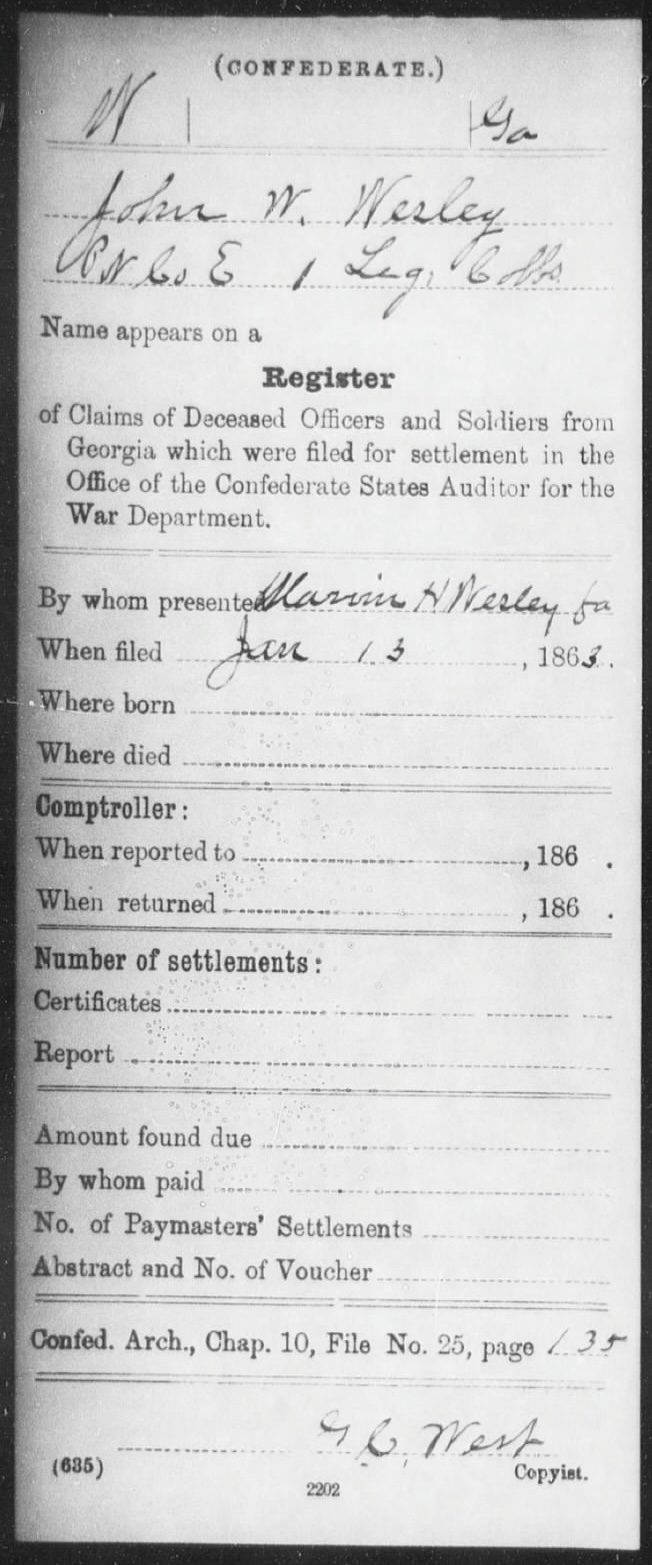 (CONFEDERATE.)
W Ga
John W. Wesley
Co E 1 Leg, Cobbs
Name appears on a
Register
of Claims of Deceased Officers and Soldiers from
Georgia which were filed for settlement in the
Office of the Confederate States Auditor for the
War Department.
By whom presented Marvin H Wesley fa
When filed Jan 13, 1863.
Where born
Where died
Comptroller:
When reported to , 186 .
When returned , 186 .
Number of settlements:
Certificates
Report
Amount found due
By whom paid
No. of Paymasters' Settlements
Abstract and No. of Voucher
Confed. Arch., Chap. 10, File No. 25, page 135
G C, West
(635) Copyist.
2202